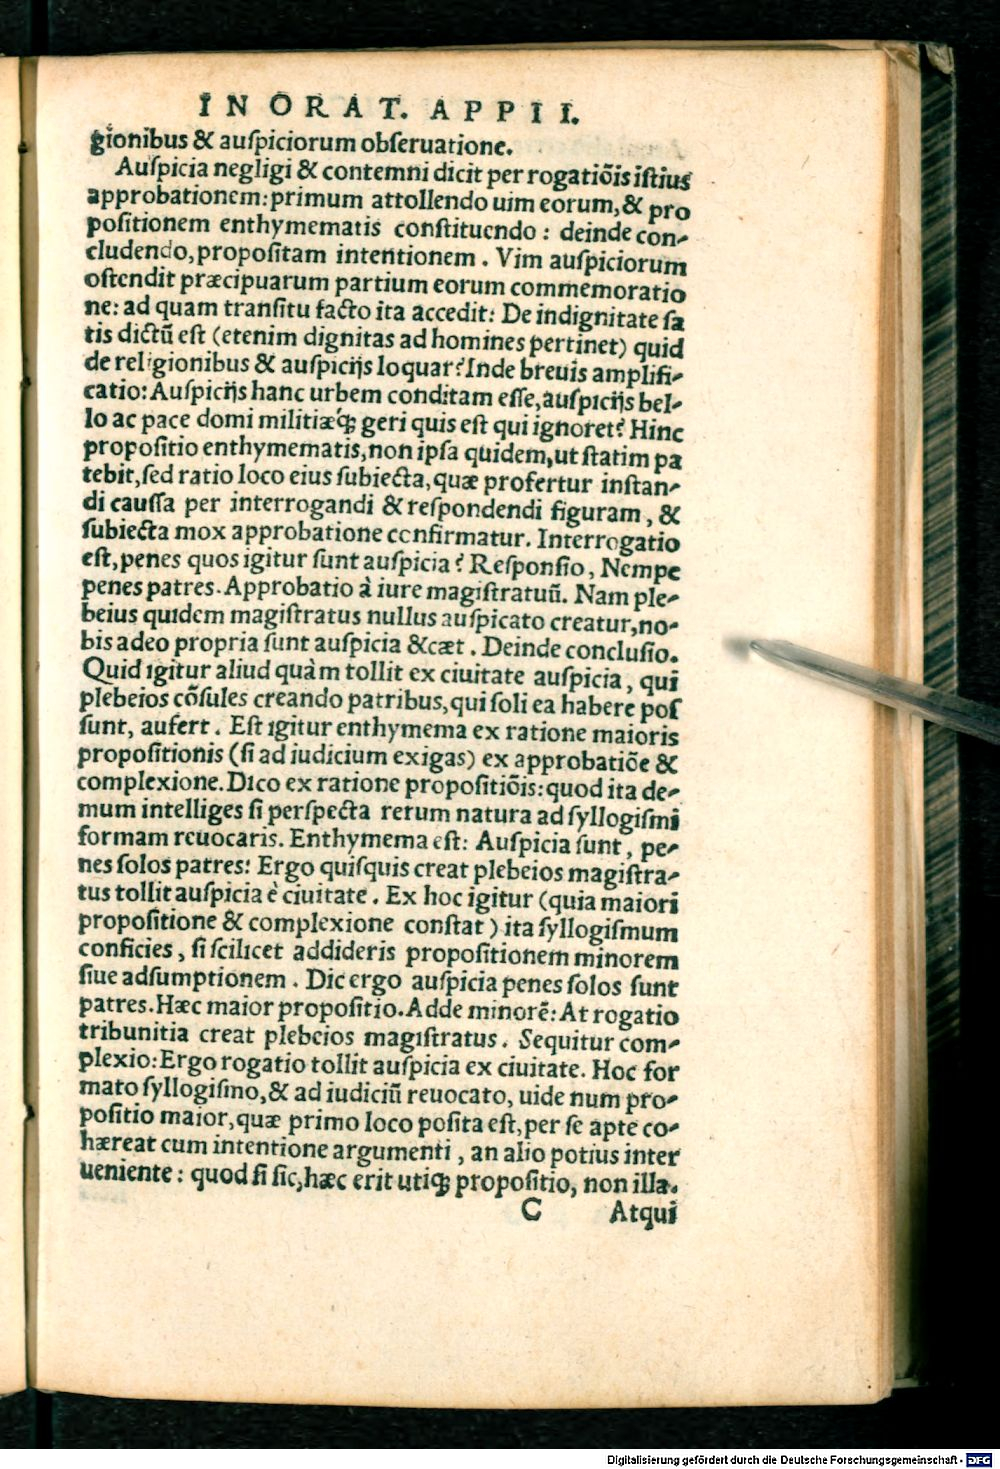 IN ORAT. APPII.
gionibus & auſpiciorum obſeruatione.
Auſpicia negligi & contemni dicit per rogatiõis iſtius
approbationem: primum attollendo uim eorum, & pro
poſitionem enthymematis conſtituendo : deinde con-
cludendo, propoſitam intentionem . Vim auſpiciorum
oſtendit præcipuarum partium eorum commemoratio
ne: ad quam tranſitu facto ita accedit: De indignitate ſa
tis dictũ eſt (etenim dignitas ad homines pertinet) quid
de religionibus & auſpicijs loquar? Inde breuis amplifi-
catio: Auſpicijs hanc urbem conditam eſſe, auſpicijs bel-
lo ac pace domi militiæq́; geri quis eſt qui ignoret? Hinc
propoſitio enthymematis, non ipſa quidem, ut ſtatim pa
tebit, ſed ratio loco eius ſubiecta, quæ profertur inſtan-
di cauſſa per interrogandi & reſpondendi figuram , &
ſubiecta mox approbatione confirmatur. Interrogatio
eſt, penes quos igitur ſunt auſpicia? Reſponſio, Nempe
penes patres. Approbatio à iure magiſtratuũ. Nam ple-
beius quidem magiſtratus nullus auſpicato creatur, no-
bis adeo propria ſunt auſpicia &cæt . Deinde concluſio.
Quid igitur aliud quàm tollit ex ciuitate auſpicia , qui
plebeios cõſules creando patribus, qui ſoli ea habere poſ
ſunt, aufert . Eſt igitur enthymema ex ratione maioris
propoſitionis (ſi ad iudicium exigas) ex approbatiõe &
complexione. Dico ex ratione propoſitiõis: quod ita de-
mum intelliges ſi perſpecta rerum natura ad ſyllogiſmi
formam reuocaris. Enthymema eſt: Auſpicia ſunt , pe-
nes ſolos patres: Ergo quiſquis creat plebeios magiſtra-
tus tollit auſpicia è ciuitate . Ex hoc igitur (quia maiori
propoſitione & complexione conſtat ) ita ſyllogiſmum
conficies , ſi ſcilicet addideris propoſitionem minorem
ſiue adſumptionem . Dic ergo auſpicia penes ſolos ſunt
patres. Hæc maior propoſitio. Adde minorẽ: At rogatio
tribunitia creat plebeios magiſtratus . Sequitur com-
plexio: Ergo rogatio tollit auſpicia ex ciuitate. Hoc for
mato ſyllogiſmo, & ad iudiciũ reuocato, uide num pro-
poſitio maior, quæ primo loco poſita eſt, per ſe apte co-
hæreat cum intentione argumenti , an alio potius inter
ueniente : quod ſi ſic, hæc erit utiq; propoſitio, non illa.
C Atqui
Digitalisierung gefördert durch die Deutsche Forschungsgemeinschaft - DFG